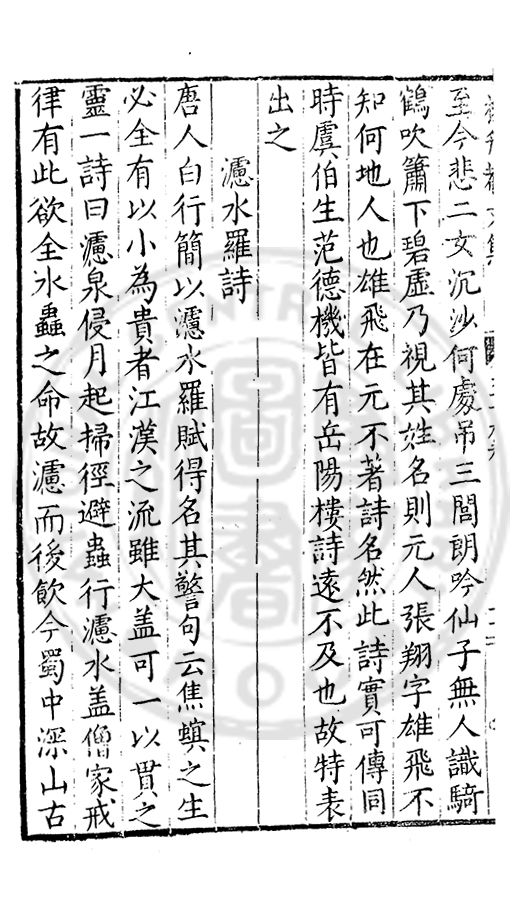 至今悲二女沉沙何處吊三閭朗吟仙子無人識騎
鶴吹簫下碧虛乃視其姓名則元人張翔字雄飛不
知何地人也雄飛在元不著詩名然此詩實可傳同
時虞伯生范德機皆有岳陽樓詩遠不及也故特表
出之
濾水羅詩
唐人白行簡以濾水羅賦得名其警句云焦螟之生
必全有以小為貴者江漢之流雖大盖可一以貫之
靈一詩曰濾泉侵月起掃徑避蟲行濾水盖僧家戒
律有此欲全水蟲之命故濾而後飲今蜀中深山古